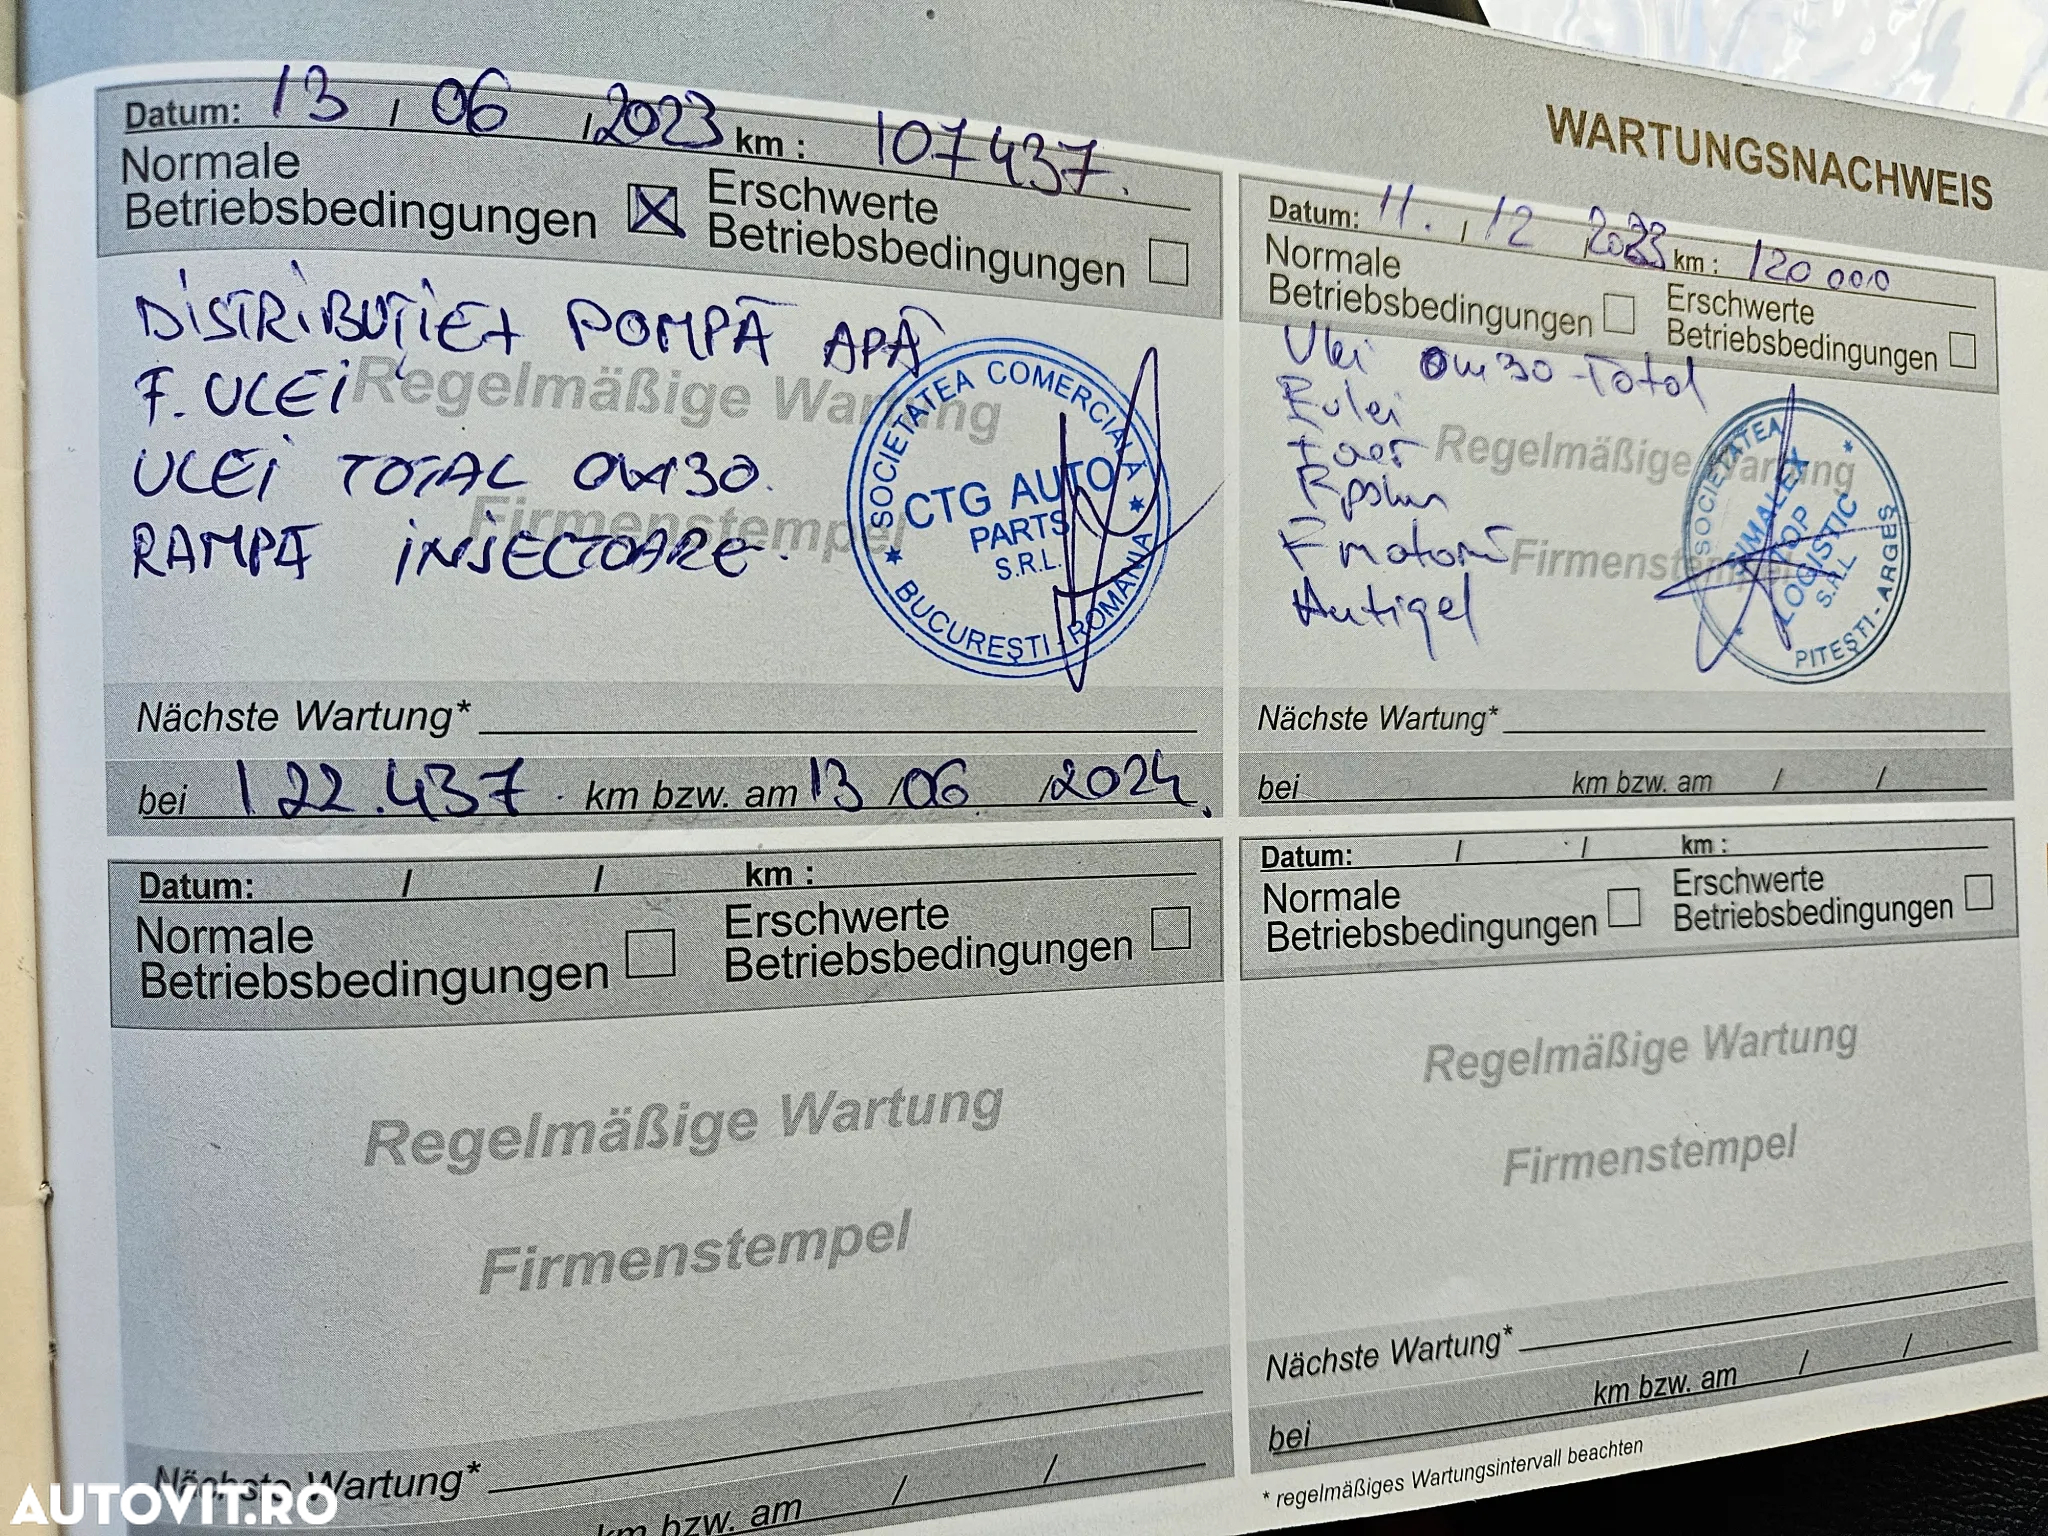 WARTUNGSNACHWEIS
Datum: 13 / 06 / 2023 km : 107437.
Normale
Betriebsbedingungen
Erschwerte
Betriebsbedingungen
DISTRIBUȚIE+ POMPĂ APĂ
F. ULEI
ULEI TOTAL 0W30.
RAMPĂ INJECTOARE.
Regelmäßige Wartung
Firmenstempel
SOCIETATEA COMERCIALĂ
CTG AUTO
PARTS
S.R.L.
BUCUREŞTI - ROMÂNIA
Nächste Wartung*
bei 122.437 km bzw. am 13 / 06 / 2024.
Datum: 11. / 12 2023 km : 120 000
Normale
Betriebsbedingungen
Erschwerte
Betriebsbedingungen
Ulei 0W30 - Total
F ulei
F aer
Antigel
Regelmäßige Wartung
Firmenstempel
SOCIETATEA
SIMALEX
TOP
LOGISTIC
S.R.L
PITEŞTI - ARGEŞ
Nächste Wartung*
bei km bzw. am / /
Datum: / / km :
Normale
Betriebsbedingungen
Erschwerte
Betriebsbedingungen
Regelmäßige Wartung
Firmenstempel
Nächste Wartung*
km bzw. am / /
Datum: / / km :
Normale
Betriebsbedingungen
Erschwerte
Betriebsbedingungen
Regelmäßige Wartung
Firmenstempel
Nächste Wartung*
bei km bzw. am / /
* regelmäßiges Wartungsintervall beachten
AUTOVIT.RO